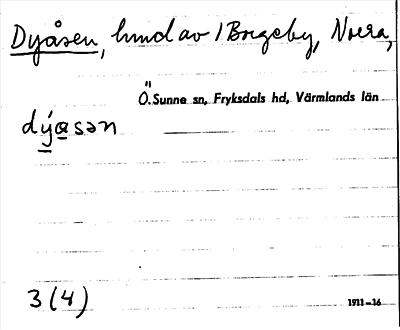 Dyåsen, hund av 1 Borgeby, Norra,
Ö. Sunne sn, Fryksdals hd, Värmlands län
dýasən
3(4)
1911–16